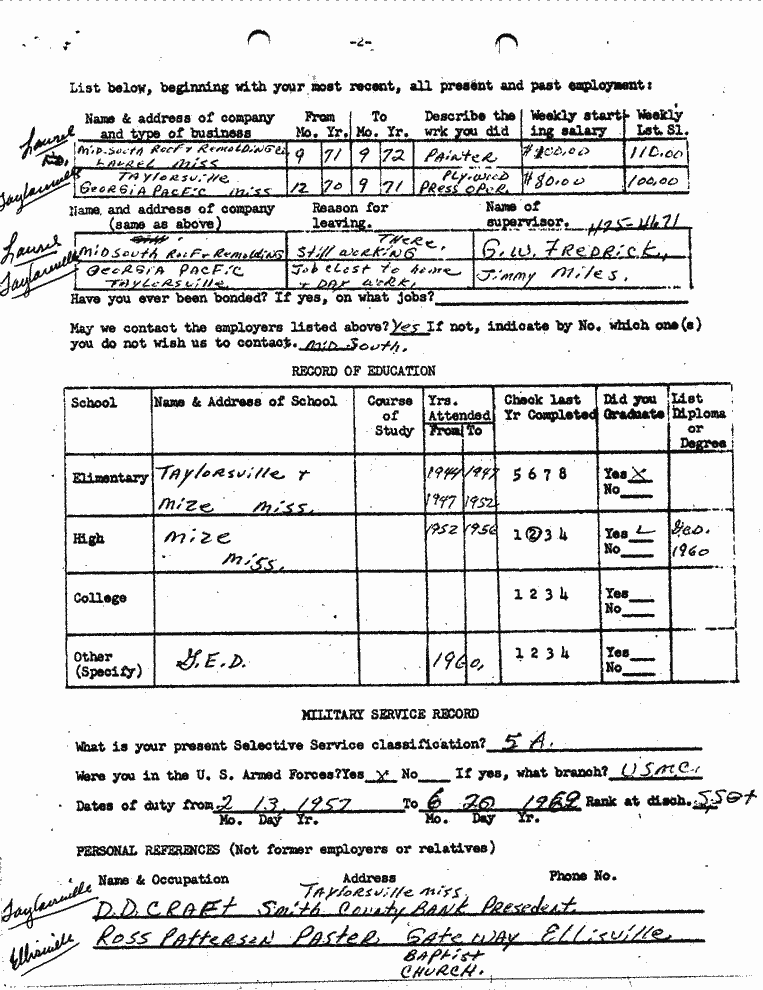 -2-
List below, beginning with your most recent, all present and past employment:
Name & address of company From To Describe the Weekly start- Weekly
and type of business Mo. Yr. Mo. Yr. wrk you did ing salary Lst. Sl.
Laurel MiD-South Roof & Remolding Co 9 71 9 72 PAinter $100.00 110.00
LAUREL Miss
Taylorsville TAYLORSVille PLYWOOD
GEORGIA PACEF'C miss 12 70 9 71 PRESS OPER. $80.00 100.00
Name and address of company Reason for Name of
(same as above) leaving. supervisor. 425-4671
Laurel MiD South RooF & Remolding Still working THERE. G.W. FREDRicK,
Taylorsville GEORGIA PACFiC Job Clost to home Jimmy Miles.
TAYLORSville + DAY WORK.
Have you ever been bonded? If yes, on what jobs?
May we contact the employers listed above? Yes If not, indicate by No. which one(s)
you do not wish us to contact. MiD South.
RECORD OF EDUCATION
School Name & Address of School Course of Study Yrs. Attended From To Check last Yr Completed Did you Graduate List Diploma or Degree
Elimentary TAYLORSville + 1944 1947 5 6 7 8 Yes X
Mize Miss. 1947 1952 No
High Mize 1952 1956 1 2 3 4 Yes L Ged.
Miss. No 1960
College 1 2 3 4 Yes
No
Other G.E.D. 1960, 1 2 3 4 Yes
(Specify) No
MILITARY SERVICE RECORD
What is your present Selective Service classification? 5 A.
Were you in the U. S. Armed Forces?Yes x No If yes, what branch? USMC.
Dates of duty from 2 13 1957 To 6 20 1969 Rank at disch. SSGt
Mo. Day Yr. Mo. Day Yr.
PERSONAL REFERENCES (Not former employers or relatives)
Name & Occupation Address Phone No.
Taylorsville TAYLORSville Miss.
D.D. CRAFt Smith County BANK PRESEDENt.
Ellisville ROSS PATTERSON PASTER GATEWAY Ellisville
BAPtist
CHURCH.